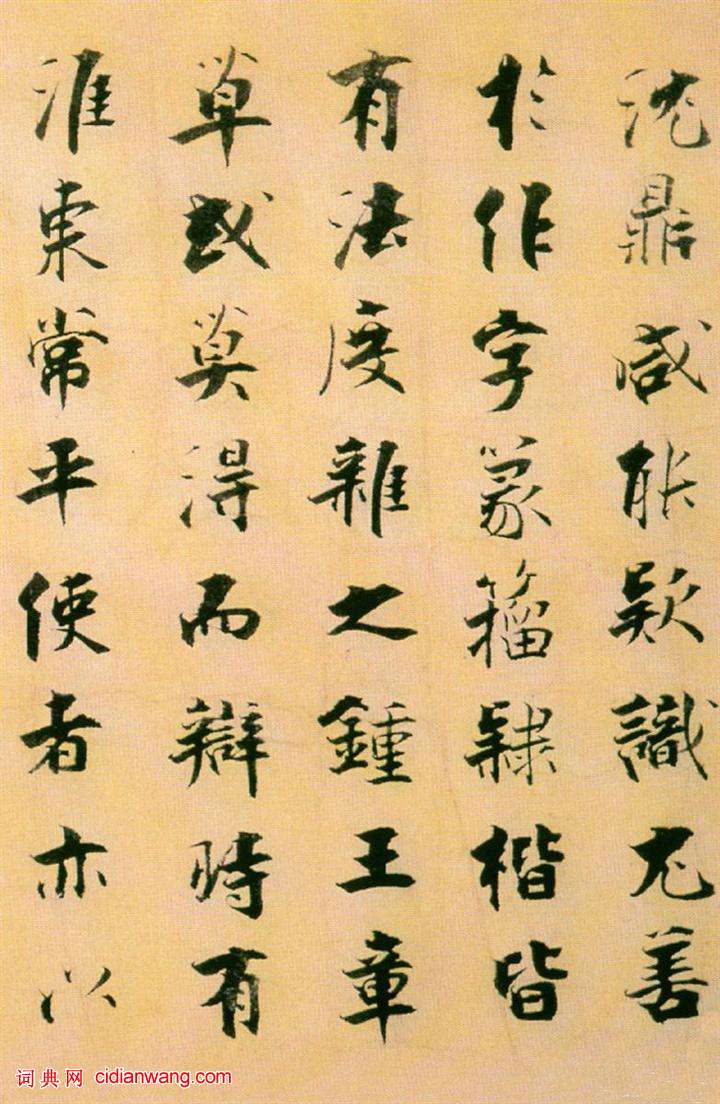 沈鼎咸能款識尤善
於作字篆籀隸楷皆
有法度雜之鍾王章
草或莫得而辯時有
淮東常平使者亦以
词典网 cidianwang.com